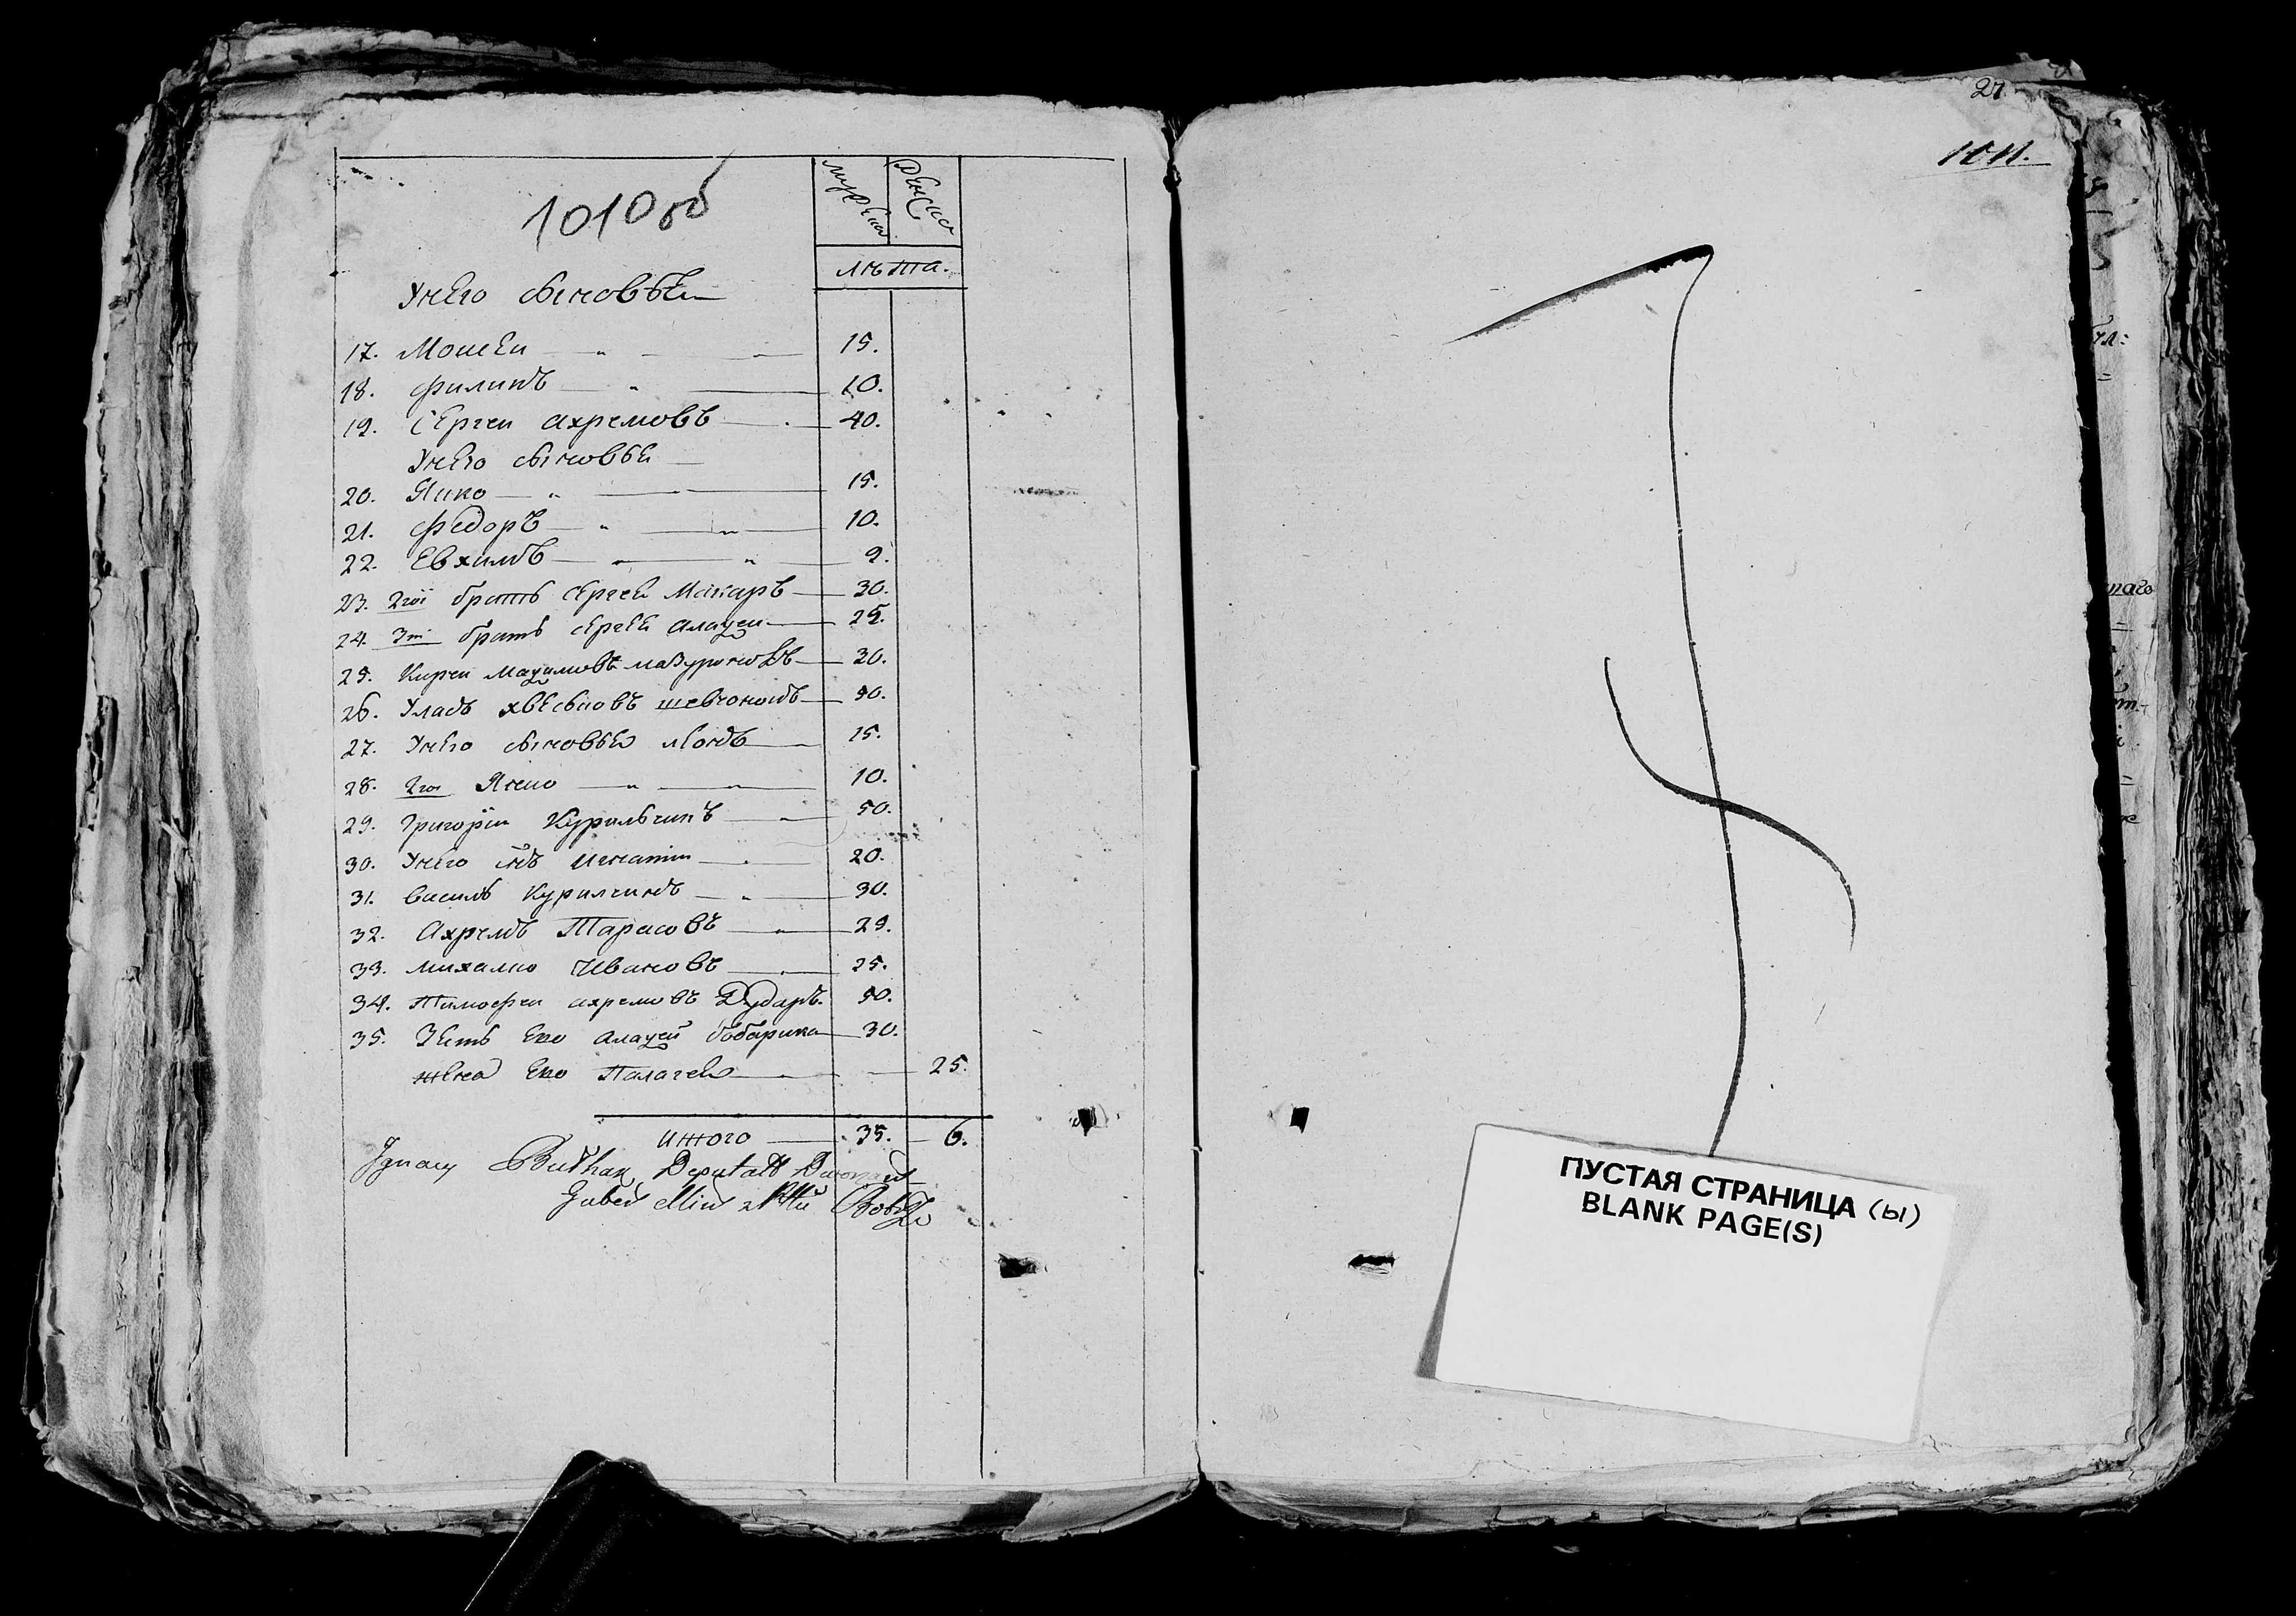 1010 об
мужеска
женска
лѣта.
Унего сыновьеи
17. Мошеи 15.
18. Филипъ 10.
19. Сергеи ахремовъ 40.
Унего сыновьеи
20. Янко 15.
21. Федоръ 10.
22. Евхимъ 9.
23. 2гои братъ сергеи Макаръ 30.
24. 3и братъ сергеи алаҙеи 25.
25. Кирей Маҙимовъ маЗуроновъ 30.
26. Уласъ хвеськовъ шевчонокъ
27. Унего сыновьеи леонъ 15.
28. 2гои Яско 10.
29. Григорiи Курильчикъ 50.
30. Унего снъ игнатiи 20.
31. василь Курилчикъ 30.
32. Ахремъ Тарасовъ 29.
33. михалко Ивановъ 25.
34. Тимофеи ахремовъ Дударъ 50.
35. Зеть Ево алаҙей бобарика 30.
жена Ево Палагея 25.
итого 35. 6.
Ignacy Deputatt
Guber Min
27
1011.
ПУСТАЯ СТРАНИЦА (Ы)
BLANK PAGE(S)